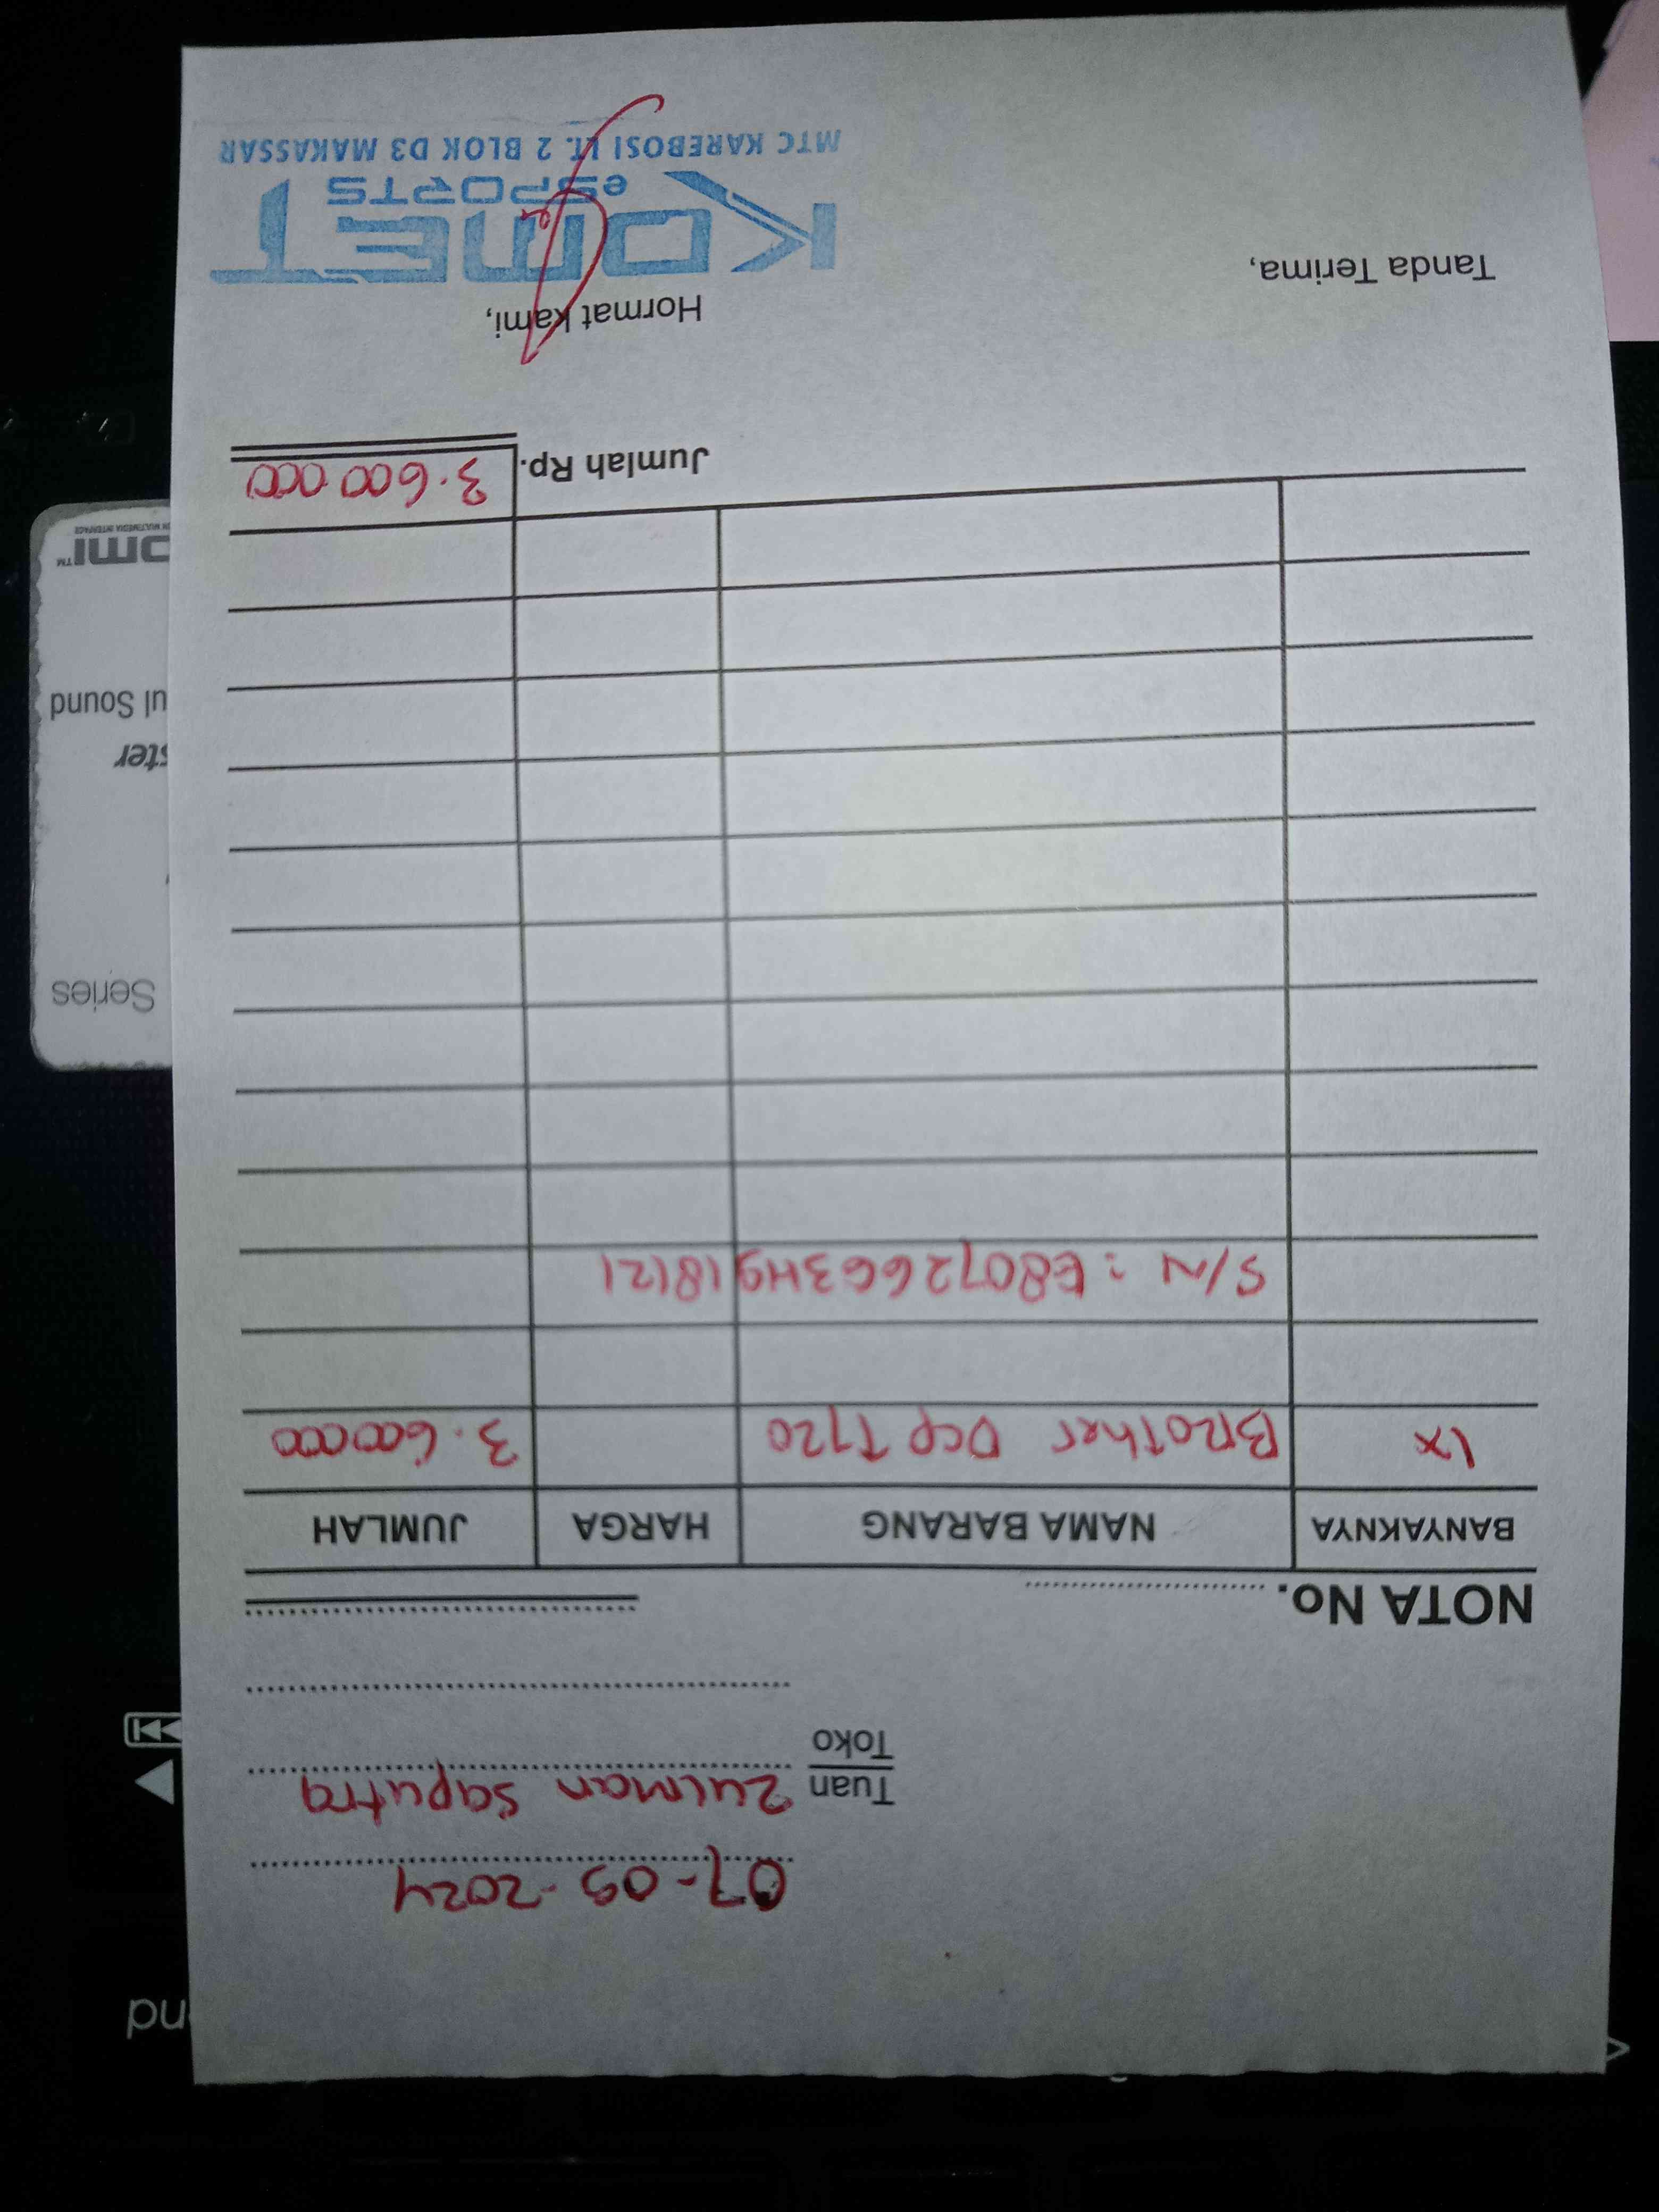 07-09-2024
Tuan Zulman Saputra
Toko
NOTA No.
BANYAKNYA NAMA BARANG HARGA JUMLAH
1x Brother Dcp T720 3.600000
S/N : E80726G3H918121
Jumlah Rp. 3.600 000
Tanda Terima, Hormat Kami,
KOMET
eSPORTS
MTC KAREBOSI LT. 2 BLOK D3 MAKASSAR
Series
ster
ul Sound
nd